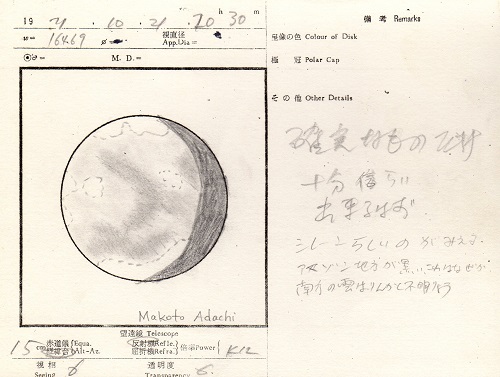 19 71・10・21・20 h 30 m
ω= 164.69 φ= 視直径 App.Dia=
M. D.=
備考 Remarks
星像の色 Colour of Disk
極冠 Polar Cap
その他 Other Details
確実なものだけ
十分信らい
出来るはず
シレーンらしいのがみえる.
アマゾン地方が黒い. これはなぜか
南方の雲はりんかく不明りょう
Makoto Adachi
望遠鏡 Telescope
15 cm 赤道儀 Equa. 経緯台 Alt-Az. 反射機 Refle. 屈折機 Refra. 倍率 Power K12
視相 Seeing 6 透明度 Transparency 6.